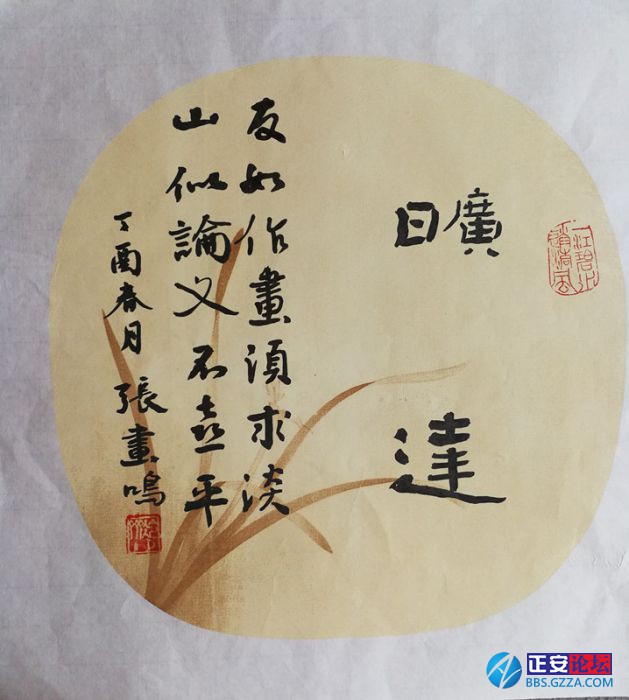 曠達
友如作畫須求淡
山似論文不喜平
丁酉春月 張畫鳴
正安论坛
BBS.GZZA.COM